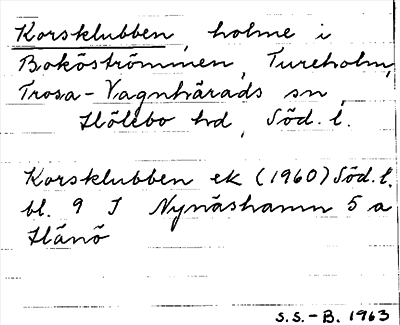 Korsklubben, holme i
Boköströmmen, Tureholm,
Trosa-Vagnhärads sn,
Hölebo hd, Söd. l.
Korsklubben ek (1960) Söd. l.
bl. 9 I Nynäshamn 5 a
Hånö
S.S.-B. 1963